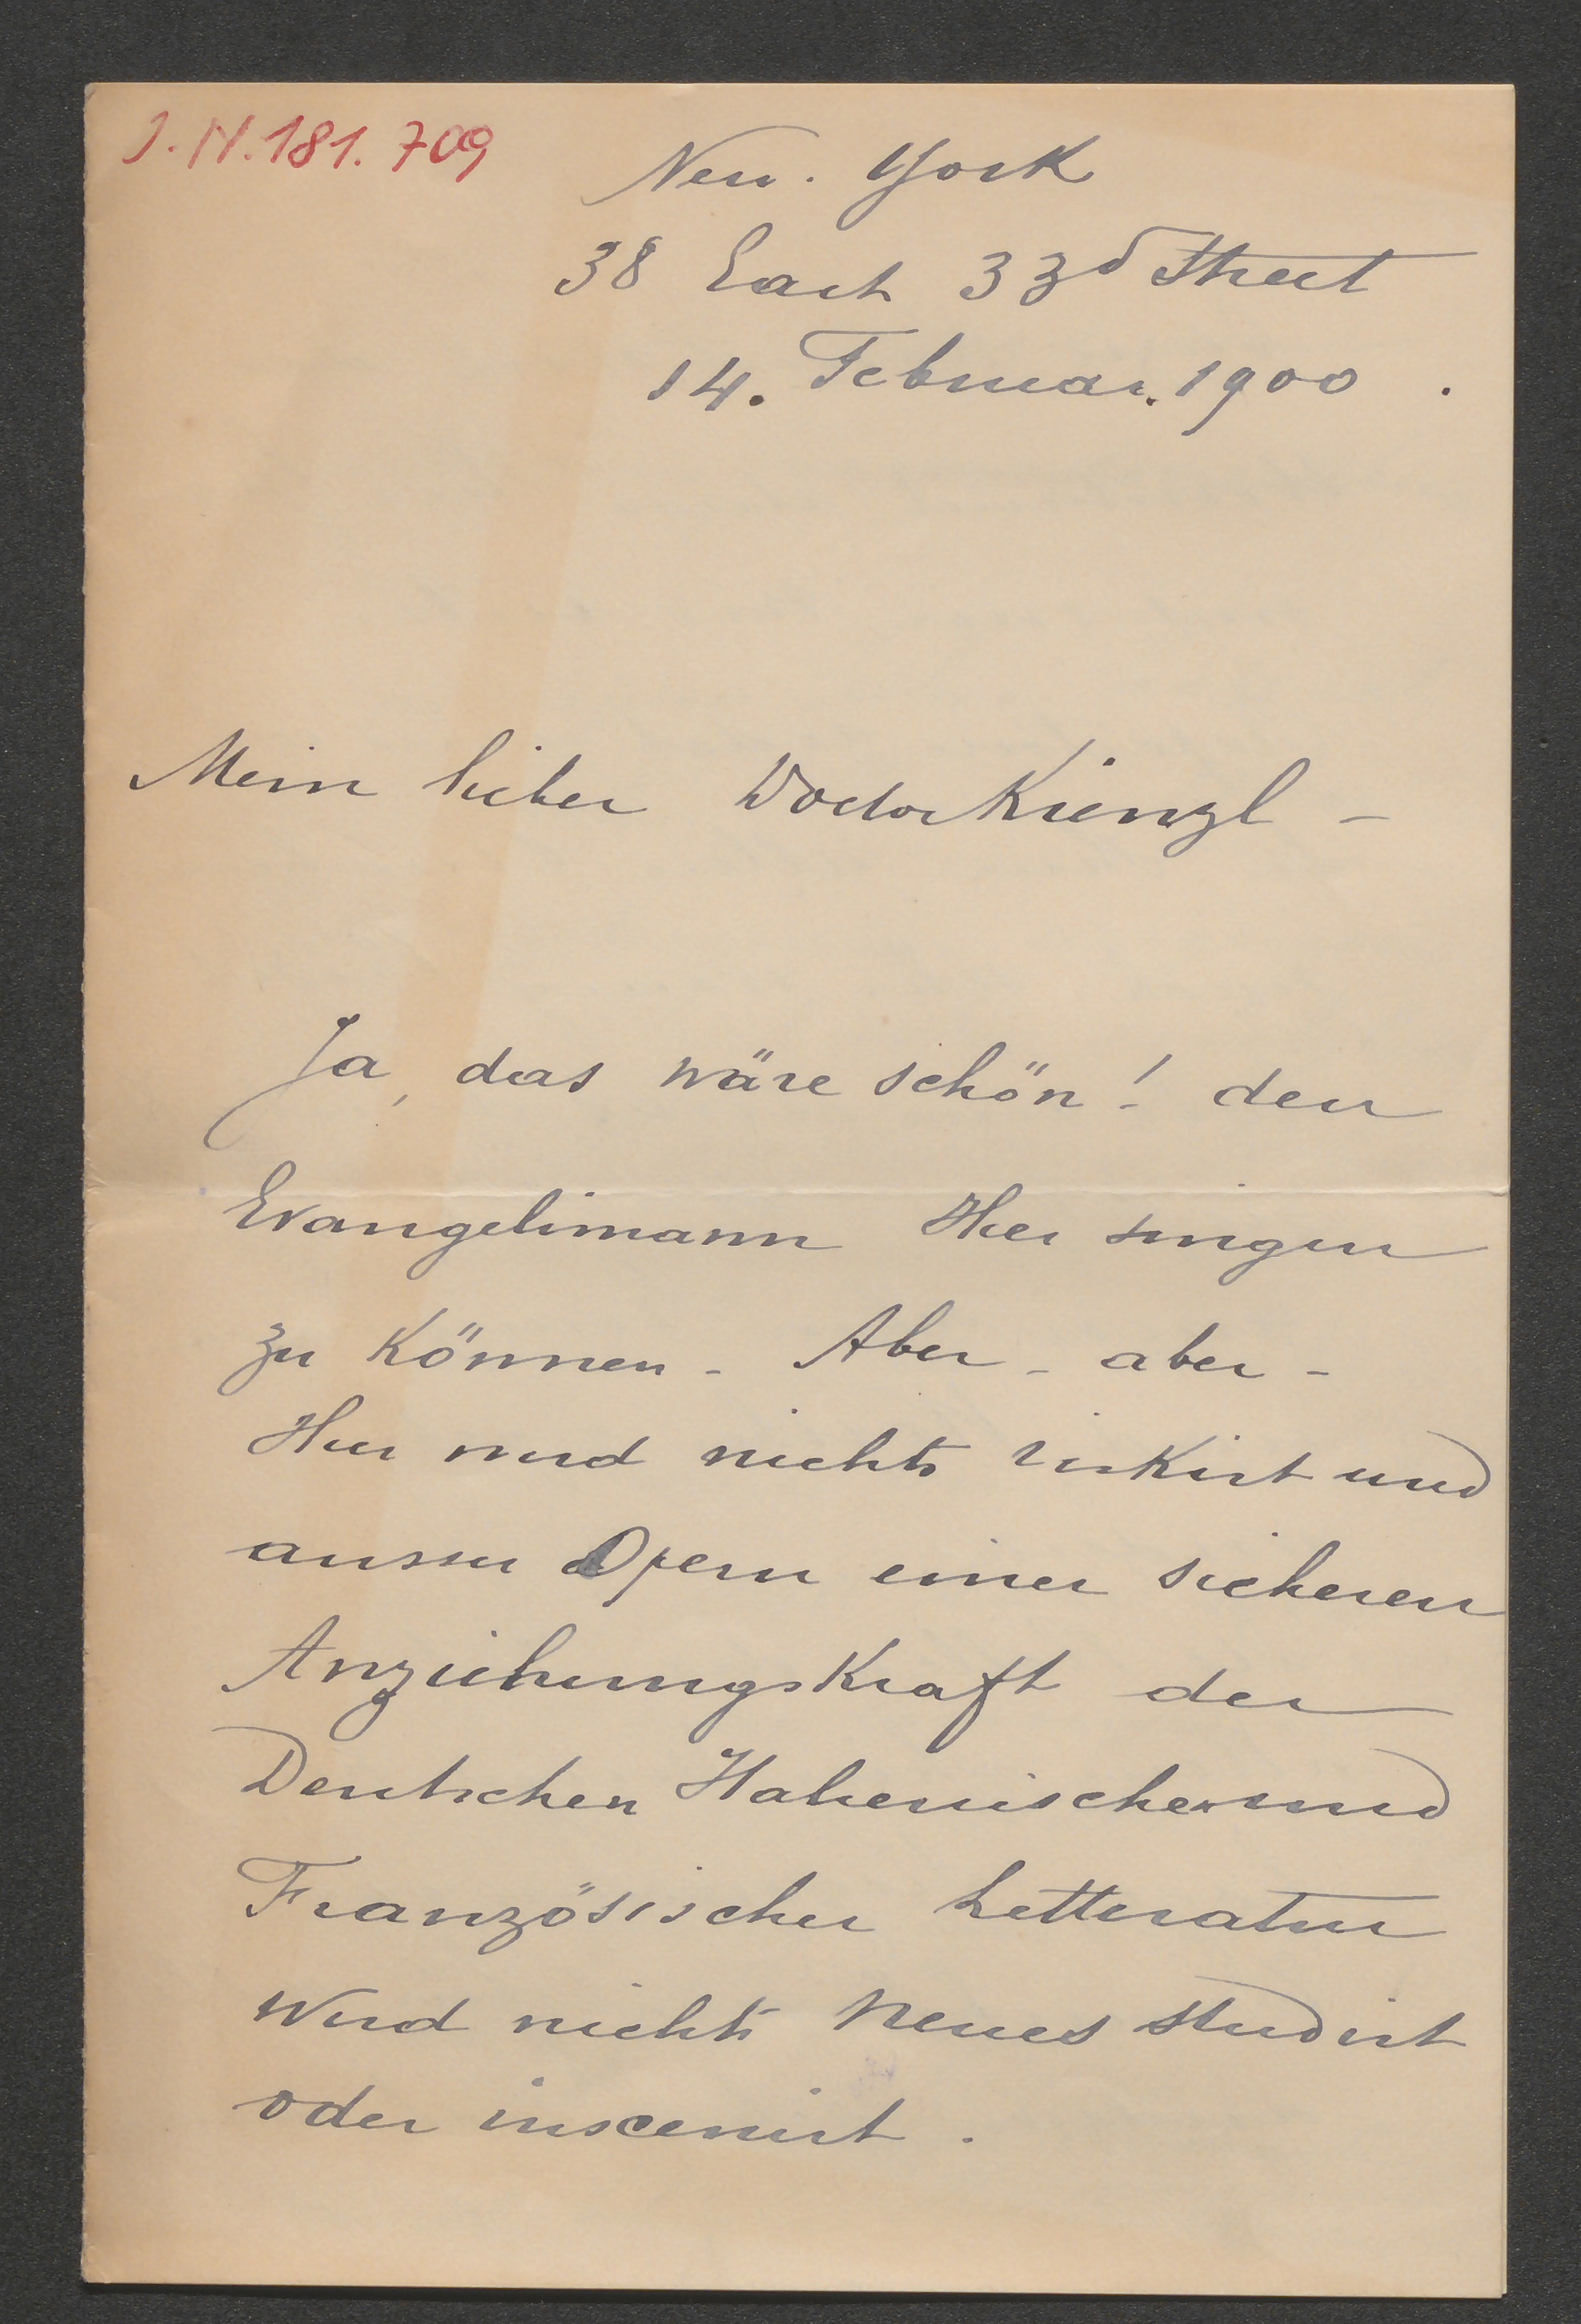 J.N.181.709
New. York
38 East 33d Street
14. Februar. 1900.
Mein lieber Doctor Kienzl -
Ja, das wäre schön! den
Evangelimann Hier singen
zu Können - Aber - aber -
Hier wird nichts riskirt und
ausser Opern einer sicheren
Anziehungskraft der
Deutschen Italienischen und
Französischer Litteratur
wird nichts Neues studirt
oder inscenirt.